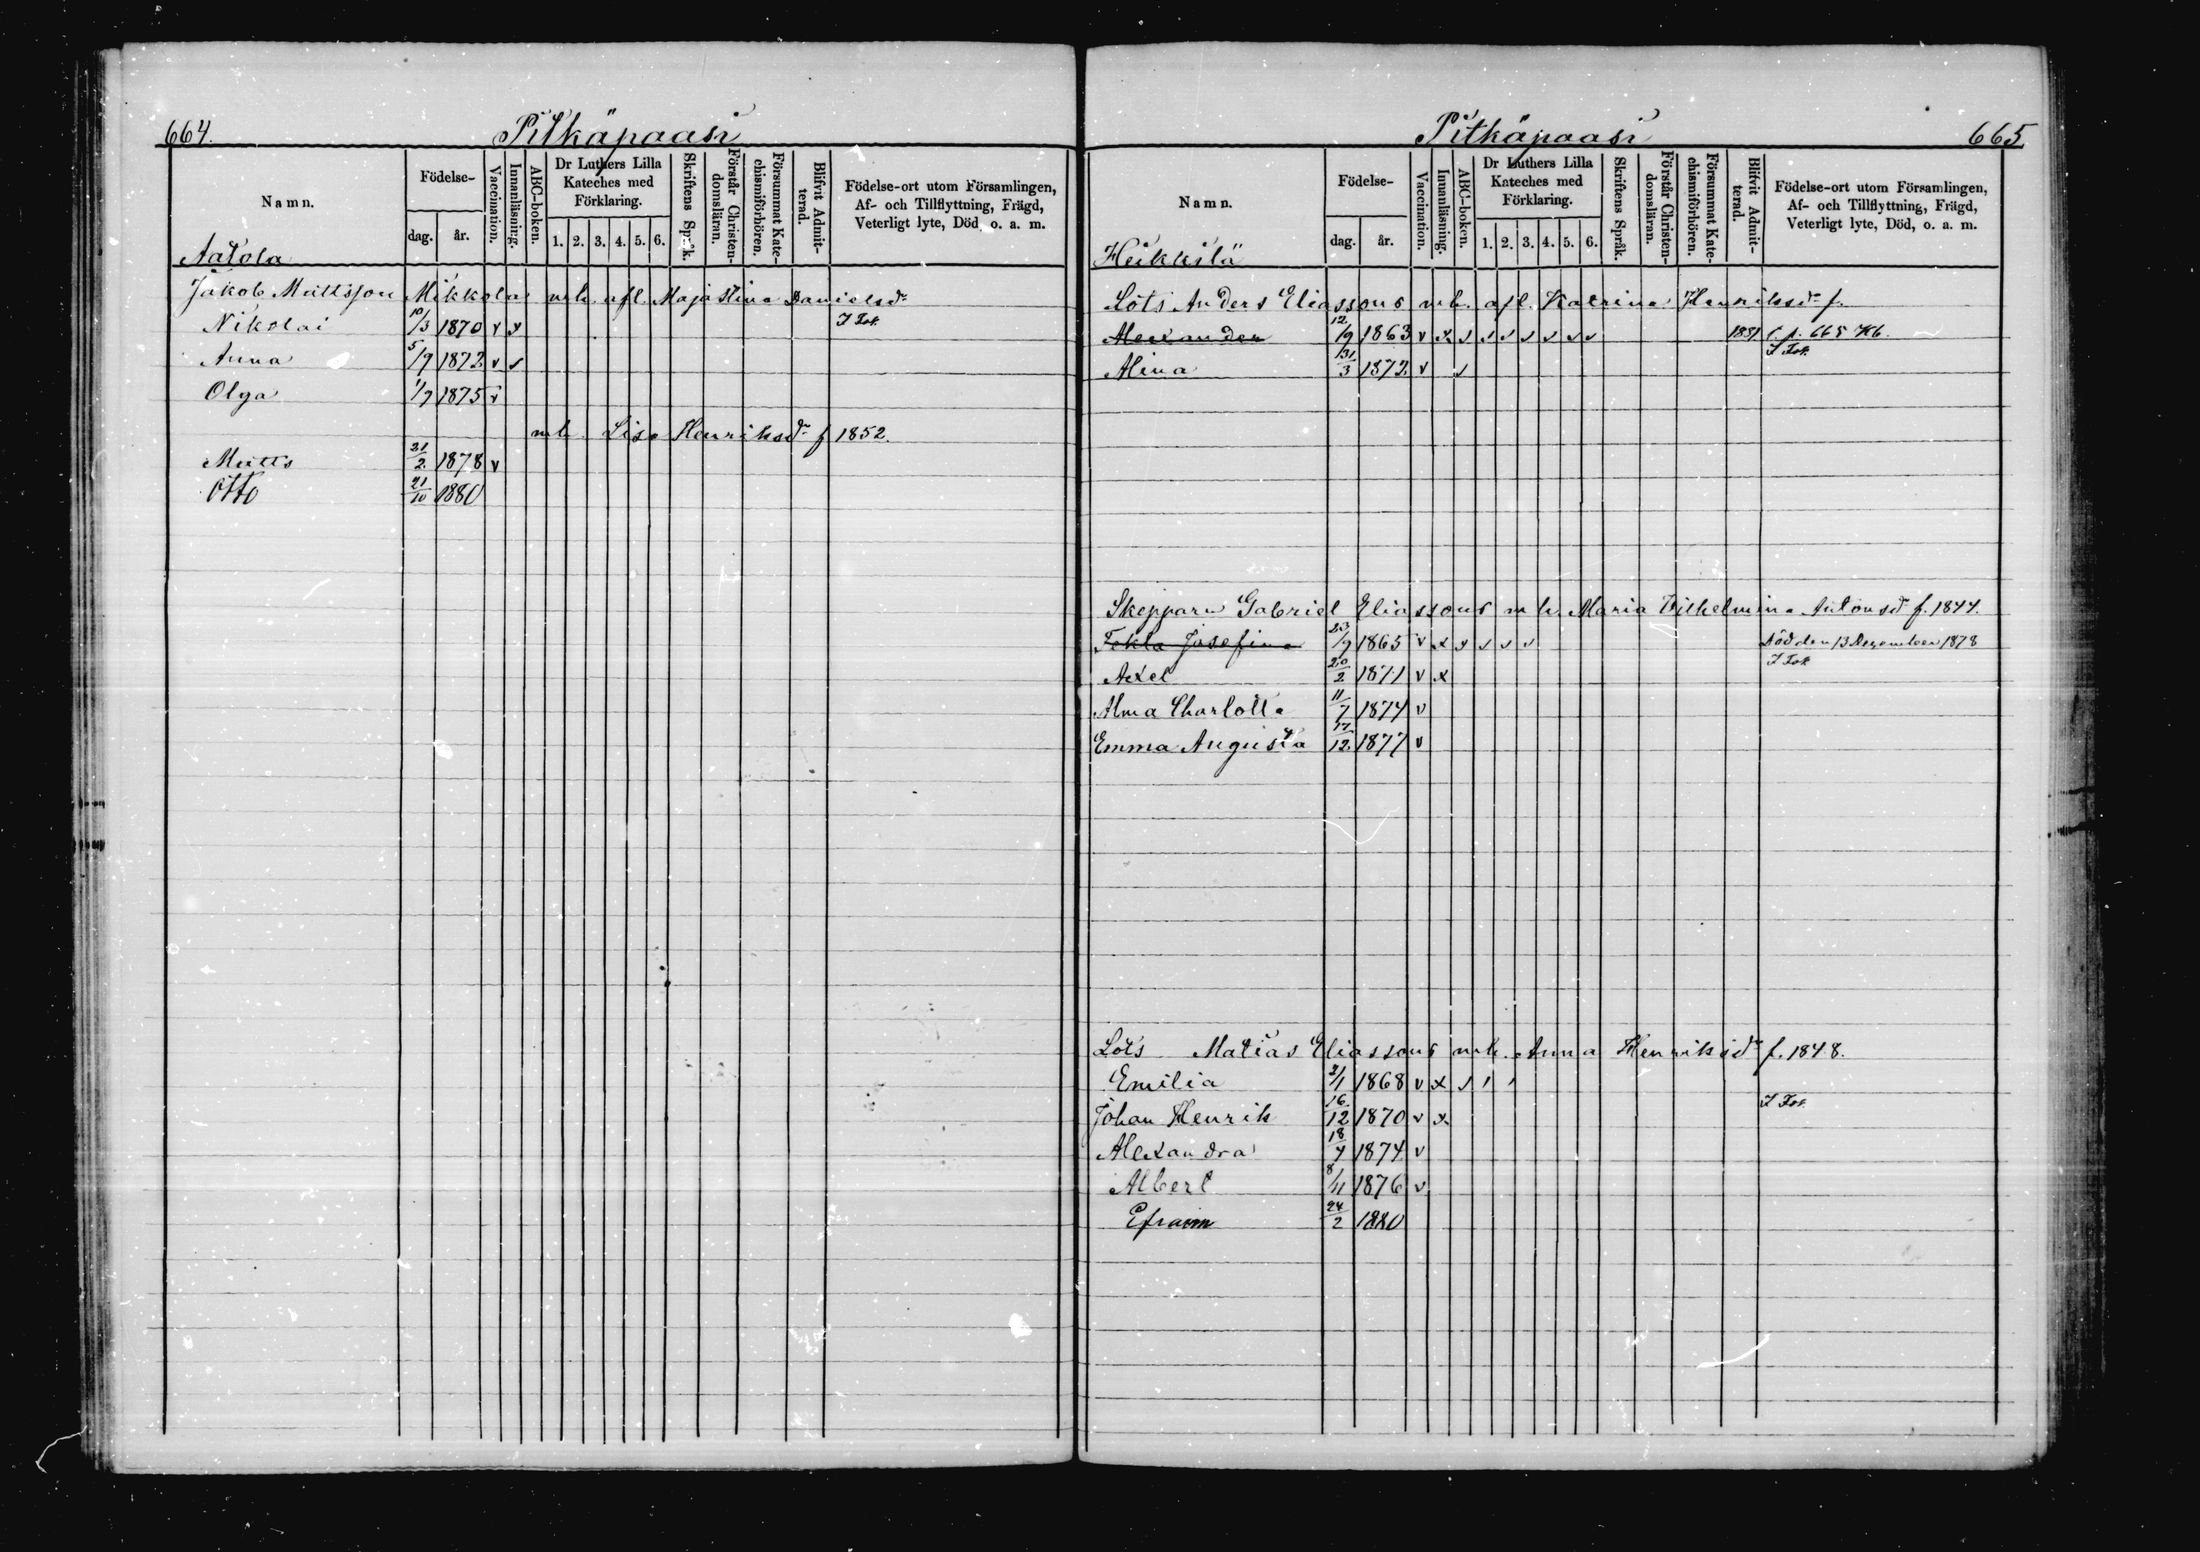 664.
Pitkäpaasi
Namn.
Födelse-
dag.
år.
Vaccination.
Innanläsning.
ABC-boken.
Dr Luthers Lilla
Kateches med
Förklaring.
1. 2. 3. 4. 5. 6.
Skriftens Språk.
Förstår Christen-
domsläran.
Försummat Kate-
chismiförhören.
Blifvit Admit-
terad.
Födelse-ort utom Församlingen,
Af- och Tillflyttning, Frägd,
Veterligt lyte, Död, o. a. m.
Aatola
Jakob Mattsson Mikkola mh. afl. Maja Stina Danielsdr
Nikolai 10/3 1870 v x
Anna 5/9 1872 v
Olga 1/9 1875 v
mh. Lisa Henriksdr f 1852.
Matts 21/2 1878 v
Otto 21/10 1880
Pitkäpaasi
665
Namn.
Födelse-
dag.
år.
Vaccination.
Innanläsning.
ABC-boken.
Dr Luthers Lilla
Kateches med
Förklaring.
1. 2. 3. 4. 5. 6.
Skriftens Språk.
Förstår Christen-
domsläran.
Försummat Kate-
chismiförhören.
Blifvit Admit-
terad.
Födelse-ort utom Församlingen,
Af- och Tillflyttning, Frägd,
Veterligt lyte, Död, o. a. m.
Heikkilä
Lots Anders Eliassons mh. afl. Katrina Henriksdr f.
Alexander 12/9 1863 v x 1881 p. 665 Kb.
Alina 31/3 1872 v
Skepparn Gabriel Eliassons mh. Maria Vilhelmina Antonsdr f. 1844.
Tekla Josefina 23/9 1865 v x Död den 13 December 1878
Axel 20/2 1871 v x
Alma Charlotta 11/7 1874 v
Emma Augusta 17/12 1877 v
Lots Matias Eliassons mh. Anna Henriksdr f. 1848.
Emilia 2/1 1868 v x
Johan Henrik 16/12 1870 v x
Alexandra 18/4 1874 v
Albert 8/11 1876 v
Efraim 24/2 1880